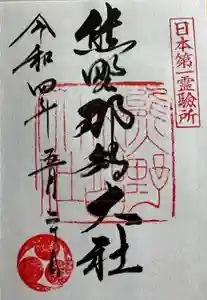 日本第一霊験所
熊野那智大社
令和四年五月二十日